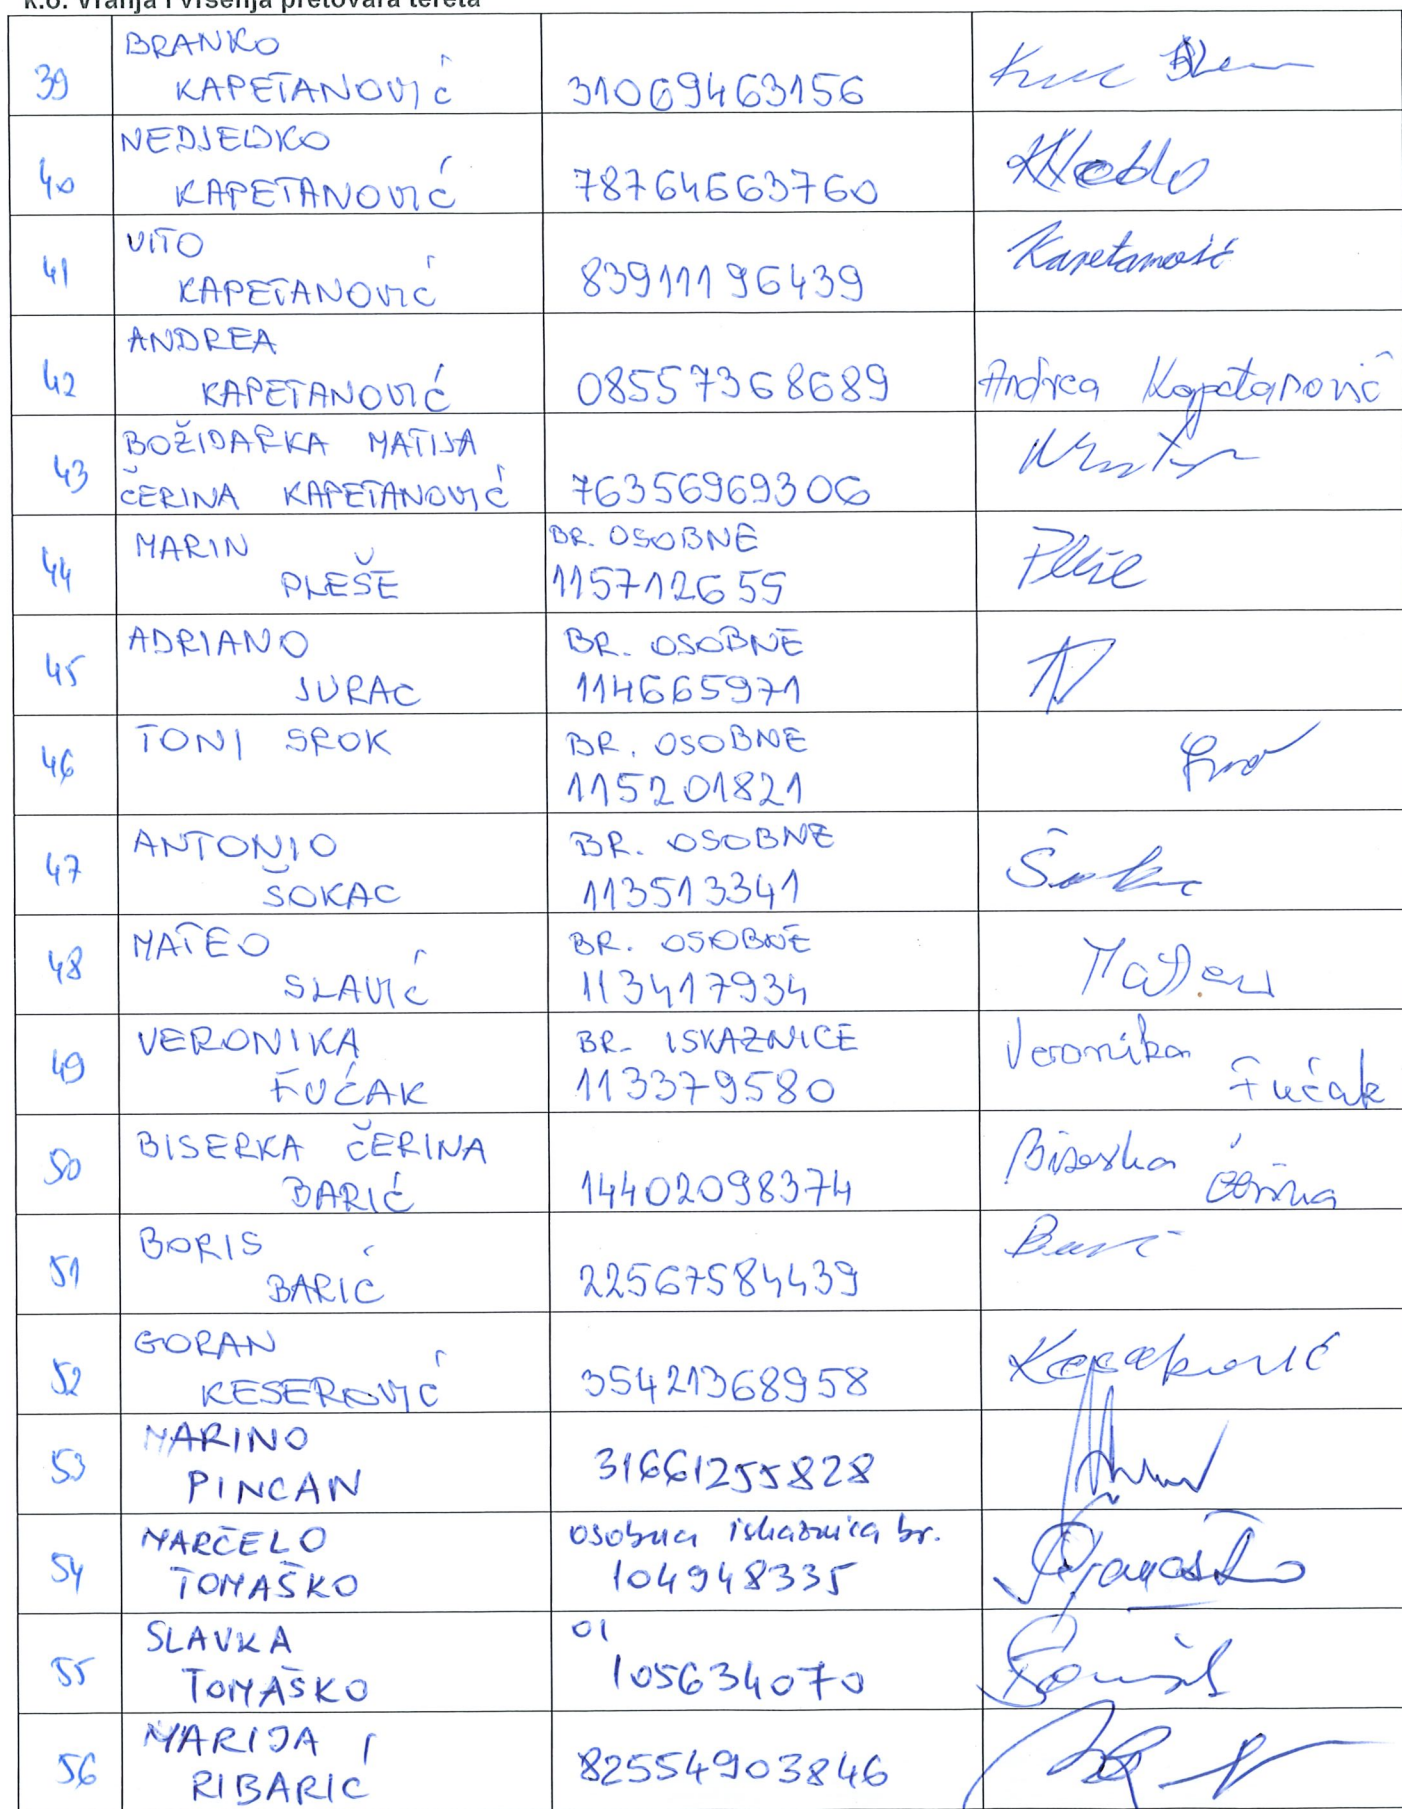 k.o. Vranja i vršenja pretovara tereta
39
BRANKO
KAPETANOVIĆ
31069463156
40
NEDJELJKO
KAPETANOVIĆ
78764663760
41
VITO
KAPETANOVIĆ
83911196439
Kapetanović
42
ANDREA
KAPETANOVIĆ
08557368689
Andrea Kapetanović
43
BOŽIDARKA MATIJA
ČERINA KAPETANOVIĆ
76356969306
44
MARIN
PLEŠE
BR. OSOBNE
115712655
Pleše
45
ADRIANO
JURAC
BR. OSOBNE
114665971
46
TONI SROK
BR. OSOBNE
115201821
47
ANTONIO
ŠOKAC
BR. OSOBNE
113513341
48
MATEO
SLAVIĆ
BR. OSOBNE
113417934
49
VERONIKA
FUĆAK
BR. ISKAZNICE
113379580
Veronika
Fućak
50
BISERKA ČERINA
BARIĆ
14402098374
Biserka
51
BORIS
BARIĆ
22567584439
52
GORAN
KESEROVIĆ
35421368958
53
MARINO
PINCAN
31661255828
54
MARČELO
TOMAŠKO
osobna iskaznica br.
104948335
55
SLAVKA
TOMAŠKO
OI
105634070
56
MARIJA
RIBARIĆ
82554903846